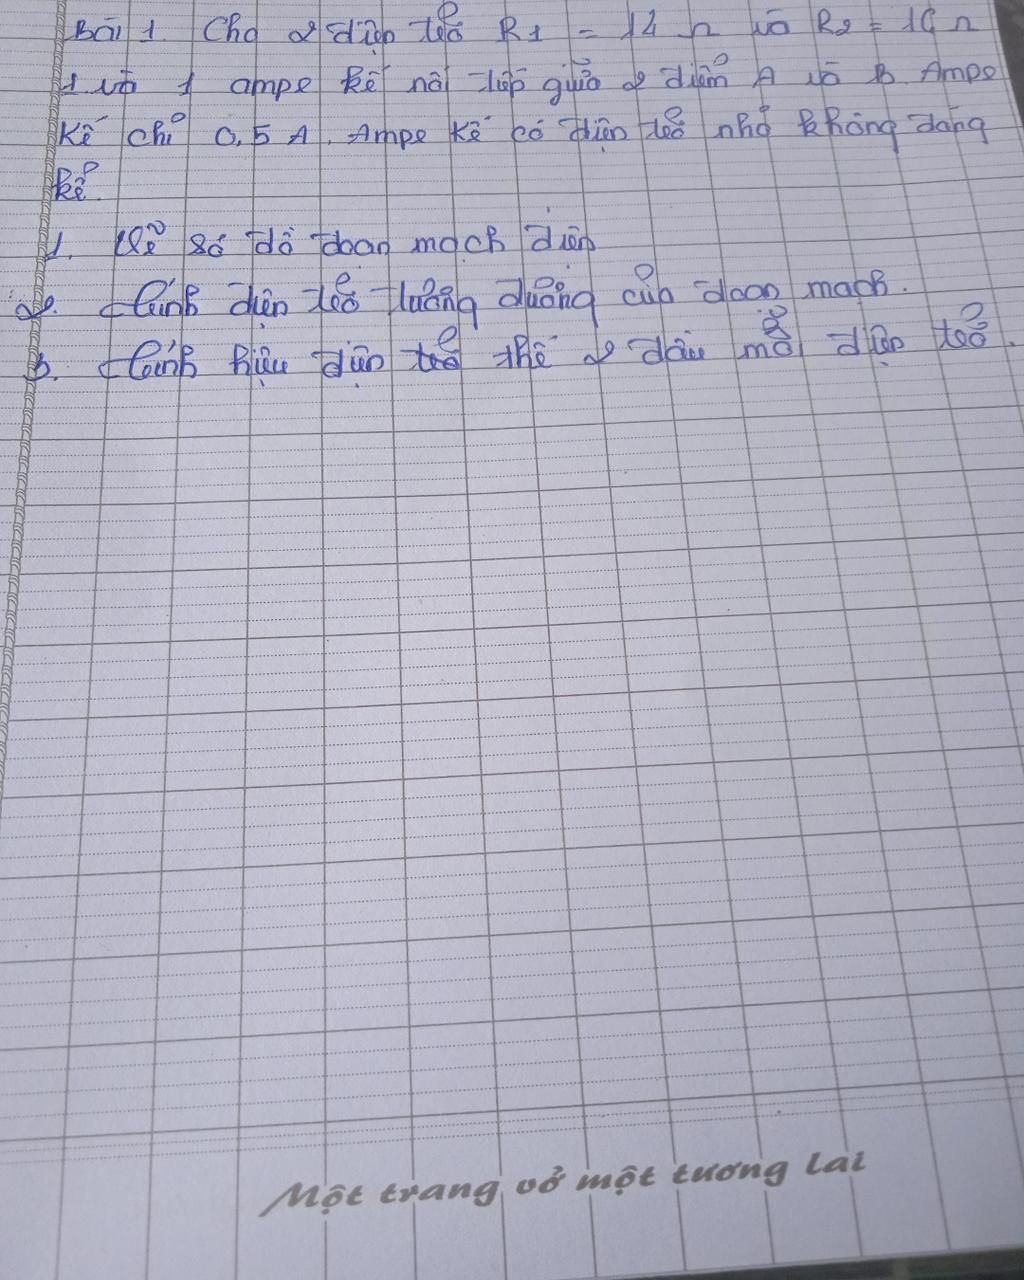 Bài 1. Cho 2 điện trở R1 = 14 Ω và R2 = 16 Ω
1 và 1 ampe kế nối tiếp giữa 2 điểm A và B Ampe
kế chỉ 0,5 A. Ampe kế có điện trở nhỏ không đáng
kể.
1. Vẽ sơ đồ đoạn mạch điện
2. Tính điện trở tương đương của đoạn mạch.
3. Tính hiệu điện trở thế 2 đầu mỗi điện trở.
Một trang vở một tương lai